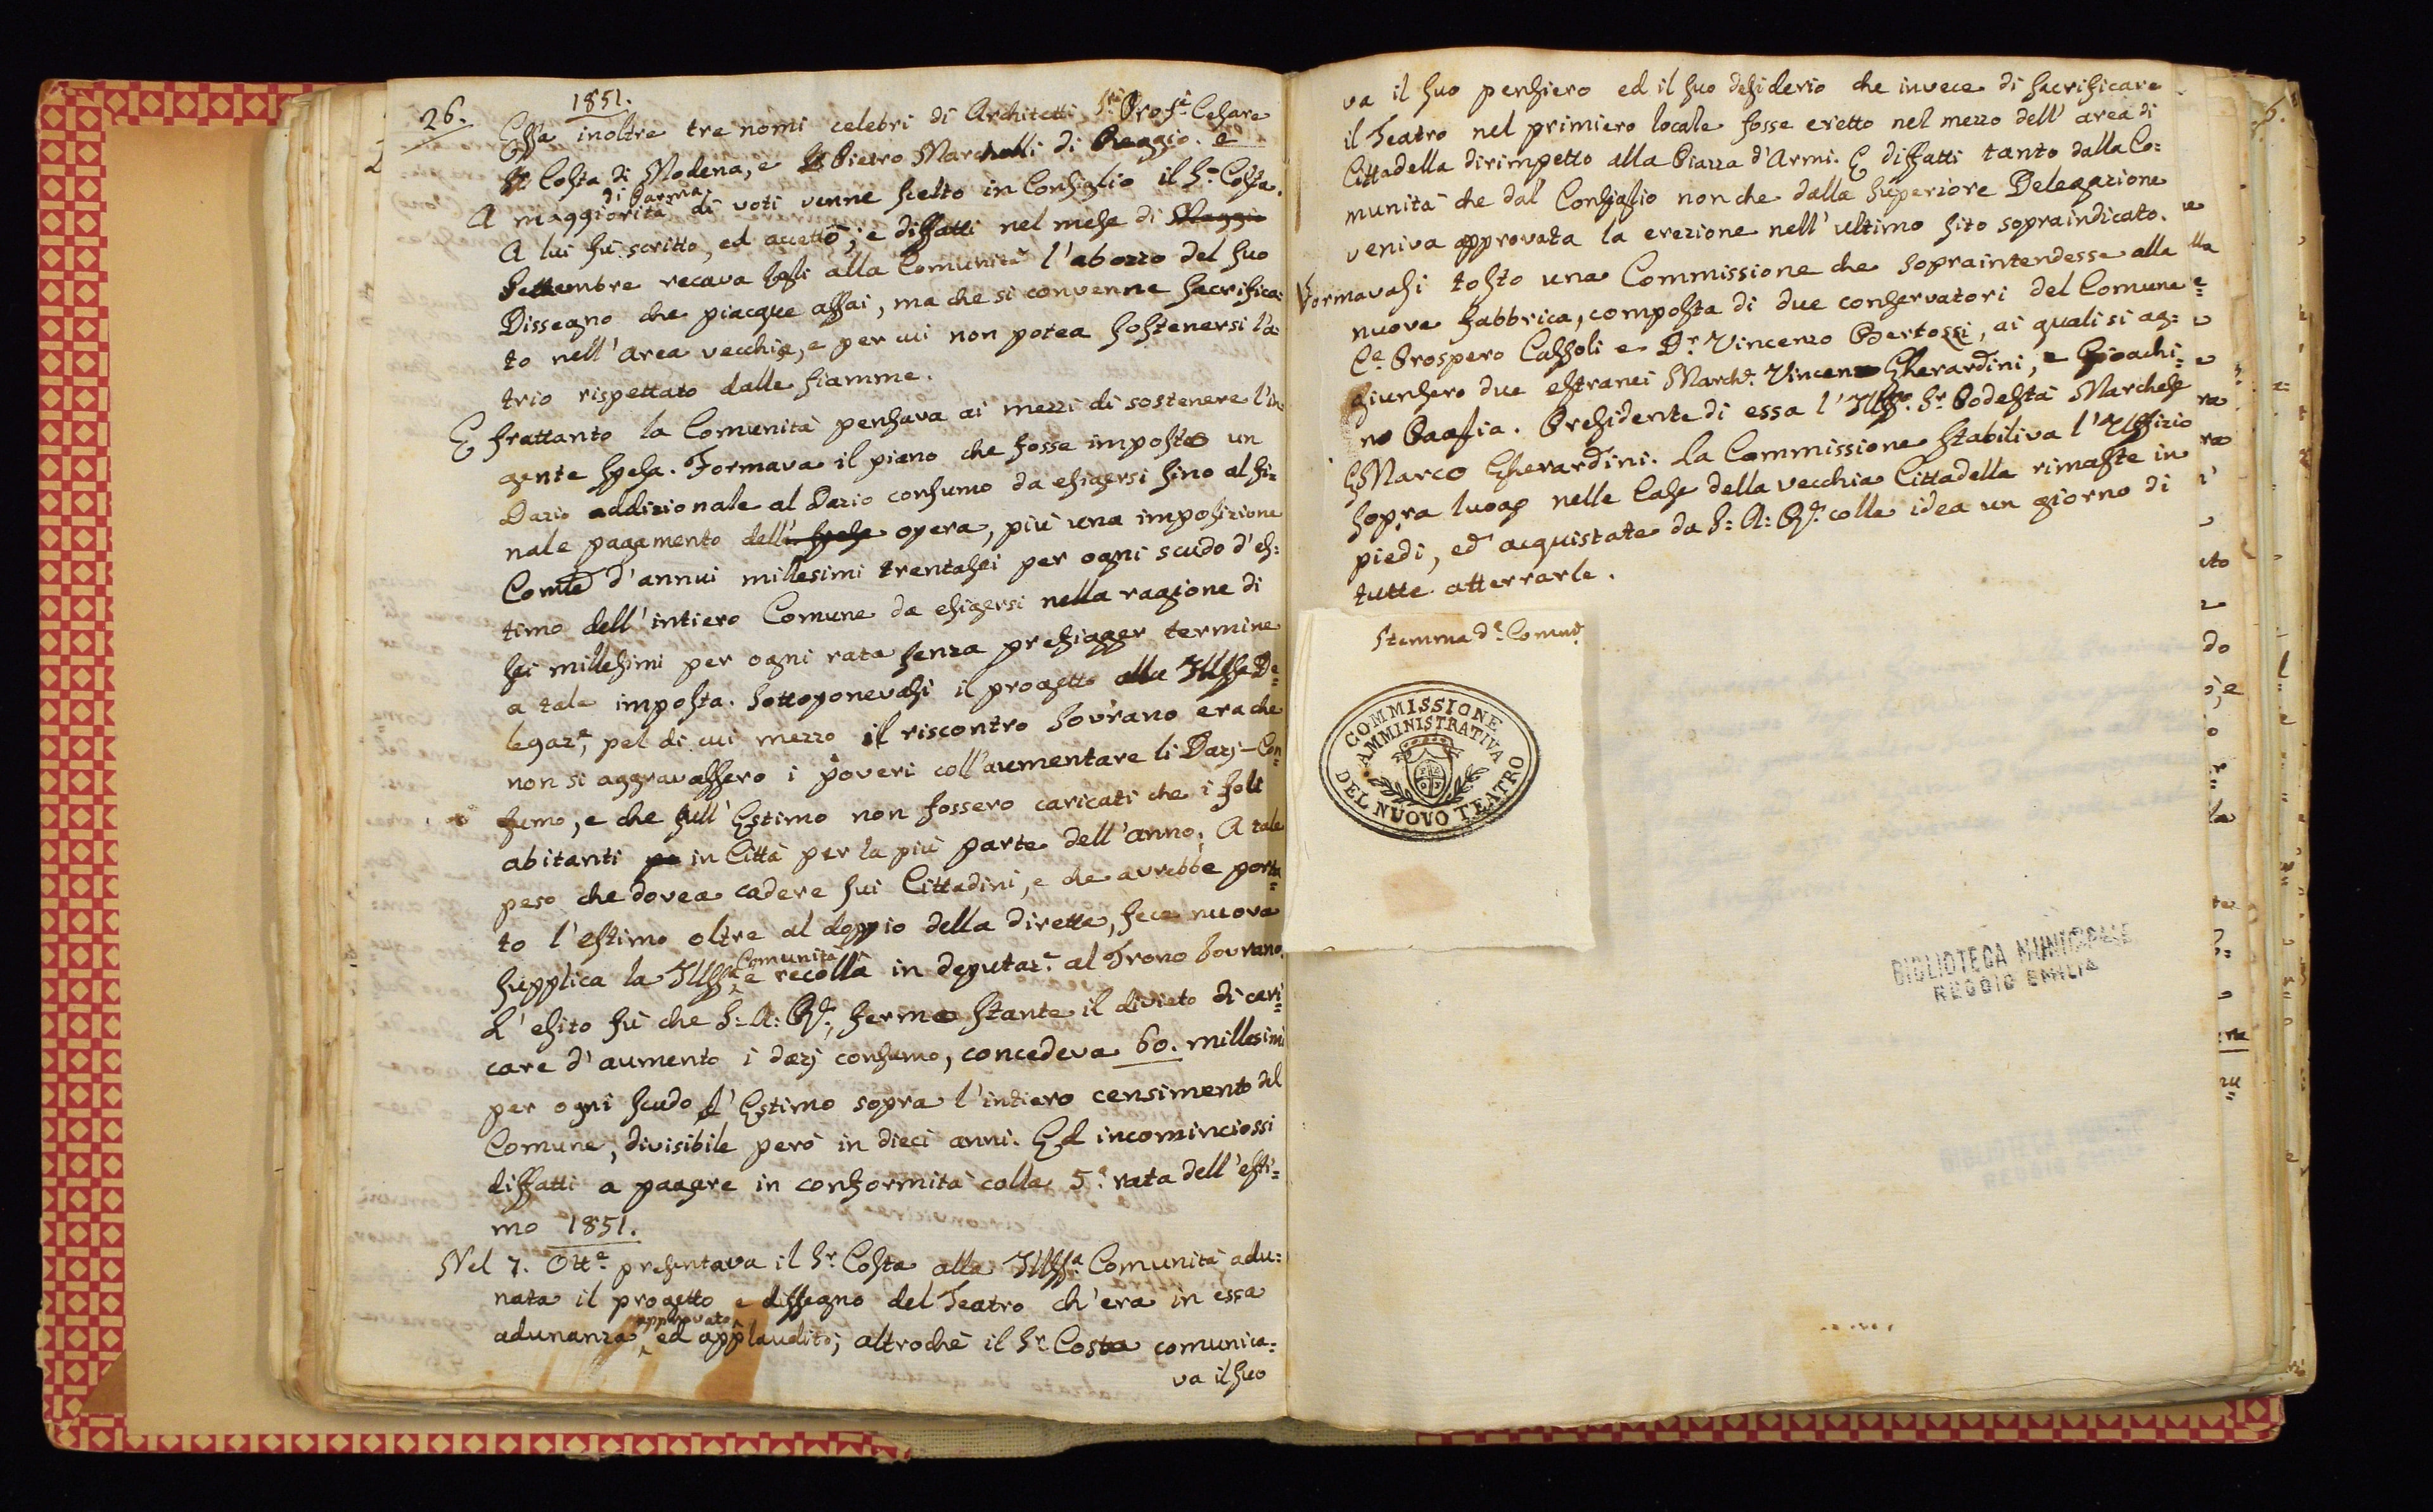 26.
1851.
Essa inoltre tre nomi celebri di Architetti, Sri Profri Cesare
Costa di Modena, e Pietro Marchelli di Reggio. e
di Parma
A maggiorità di voti venne scelto in Consiglio il Sr Costa.
A lui fù scritto, ed accettò; e diffatti nel mese di Maggio
Settembre recava Egli alla Comunità l'abozzo del suo
Dissegno che piacque assai, ma che si convenne sacrifica:
to nell'area vecchia, e per cui non potea sostenersi l'a:
trio rispettato dalle fiamme.
E frattanto la Comunità pensava ai mezzi di sostenere l'in:
gente spesa. Formava il piano che fosse imposto un
Dazio addizionale al Dazio consumo da esigersi sino al fi:
nale pagamento dell' spesa opera, più una imposizione
Comle d'annui millesimi trentasei per ogni scudo d'es:
timo dell'intiero Comune da esigersi nella ragione di
sei millesimi per ogni rata senza prefigger termine
a tale imposta. Sottoponevasi il progetto alla Illssa De=
legaze, pel di cui mezzo il riscontro Sovrano era che
non si aggravassero i poveri coll'aumentare li Dazj-Con=
sumo, e che sull'Estimo non fossero caricati che i soli
abitanti pe in Città per la più parte dell'anno. A tale
peso che dovea cadere sui Cittadini, e che avrebbe porta=
to l'estimo oltre al doppio della diretta, fece nuova
Comunità
supplica la Illssa e recolla in deputaze al Trono Sovrano.
L'esito fù che S: A: Re, fermo stante il divieto di cari=
care d'aumento i dazj consumo, concedeva 60. millesimi
per ogni scudo d'Estimo sopra l'intiero censimento del
Comune, divisibile però in dieci anni. Ed incominciossi
diffatti a pagare in conformità colla 5a rata dell'esti=
mo 1851.
Nel 7. Otte presentava il Sr Costa alla Illssa Comunità adu:
nata il progetto e dissegno del Teatro ch'era in essa
approvato
adunanza, ed applaudito; altrochè il Sr Costa comunica=
va il suo
va il suo pensiero ed il suo desiderio che invece di sacrificare
il Teatro nel primiero locale fosse eretto nel mezzo dell'area di
Cittadella dirimpetto alla Piazza d'Armi. E diffatti tanto dalla Co:
munità che dal Consiglio non che dalla Superiore Delegazione
veniva approvata la erezione nell'ultimo sito sopraindicato.
Formavasi tosto una Commissione che sopraintendesse alla
nuova fabbrica, composta di due conservatori del Comune
Ce Prospero Cassoli e Dr Vincenzo Bertozzi, ai quali si ag:
giunsero due estranei Marche Vincenzo Gherardini, e Gioachi=
no Paglia. Presidente di essa l'Illsso Sr Podestà Marchese
Marco Gherardini. La Commissione stabiliva l'Uffizio
sopra luogo nelle Case della vecchia Cittadella rimaste in
piedi, ed acquistate da S: A: Re colle idea un giorno di
tutte atterrarle.
Stemma de Comune
COMMISSIONE
AMMINISTRATIVA
DEL NUOVO TEATRO
BIBLIOTECA MUNICIPALE
REGGIO EMILIA